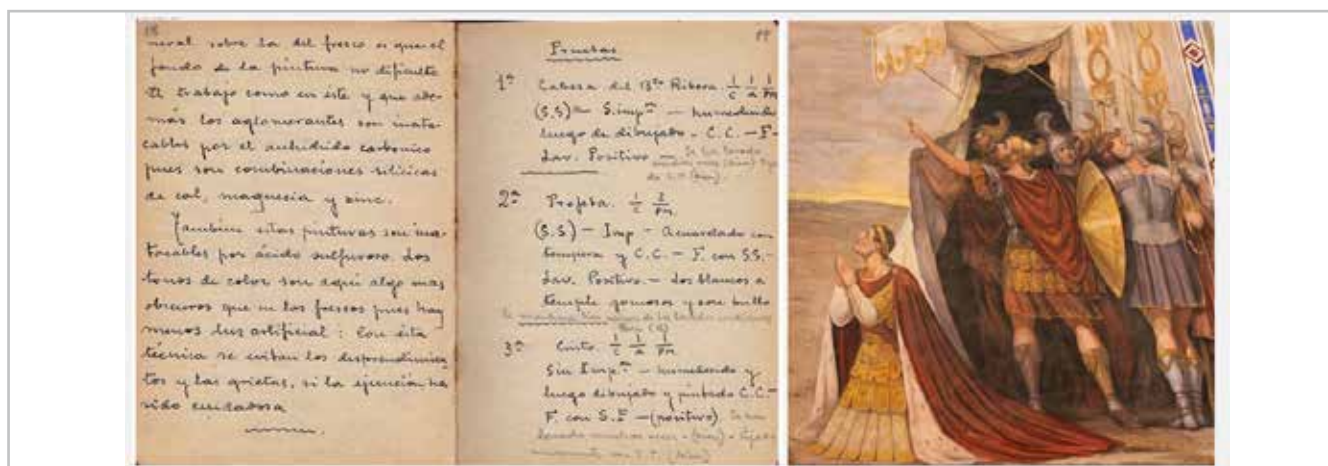 neral sobre la del fresco es que el
fondo de la pintura no dificulte
el trabajo como en éste y que ade-
más los aglomerantes son inata-
cables por el anhidrido carbonico
pues son combinaciones silicicas
de cal, magnesia y zinc.
Tambien estas pinturas son ina-
tacables por ácido sulfuroso. Los
tonos de color son aqui algo mas
obscuros que en los frescos pues hay
menos luz artificial: Con esta
técnica se evitan los desprendimien
tos y las grietas, si la ejecución ha
sido cuidadosa
Pruebas
1ª Cabeza del Bto Ribera 1/c 1/a 1/Pm
(S.S) — S.impon — humedeciendo
luego de dibujado - C.C. — F-
Lav. Positivo — Se ha lavado
muchas veces (bien)
2ª Profeta. 1/c 2/Pm
(S.S) — Imp - Acuarelado con
tempera y C.C. — F. con S.S.-
Lav. Positivo. — Los blancos a
temple gomosos y con brillo
3ª Cristo 1/c 1/a 1/Pm
Sin Impon — humedecido y
luego dibujado y pintado C.C.-
F. con S.F — (positivo) Se ha
lavado muchas veces - (bien) -